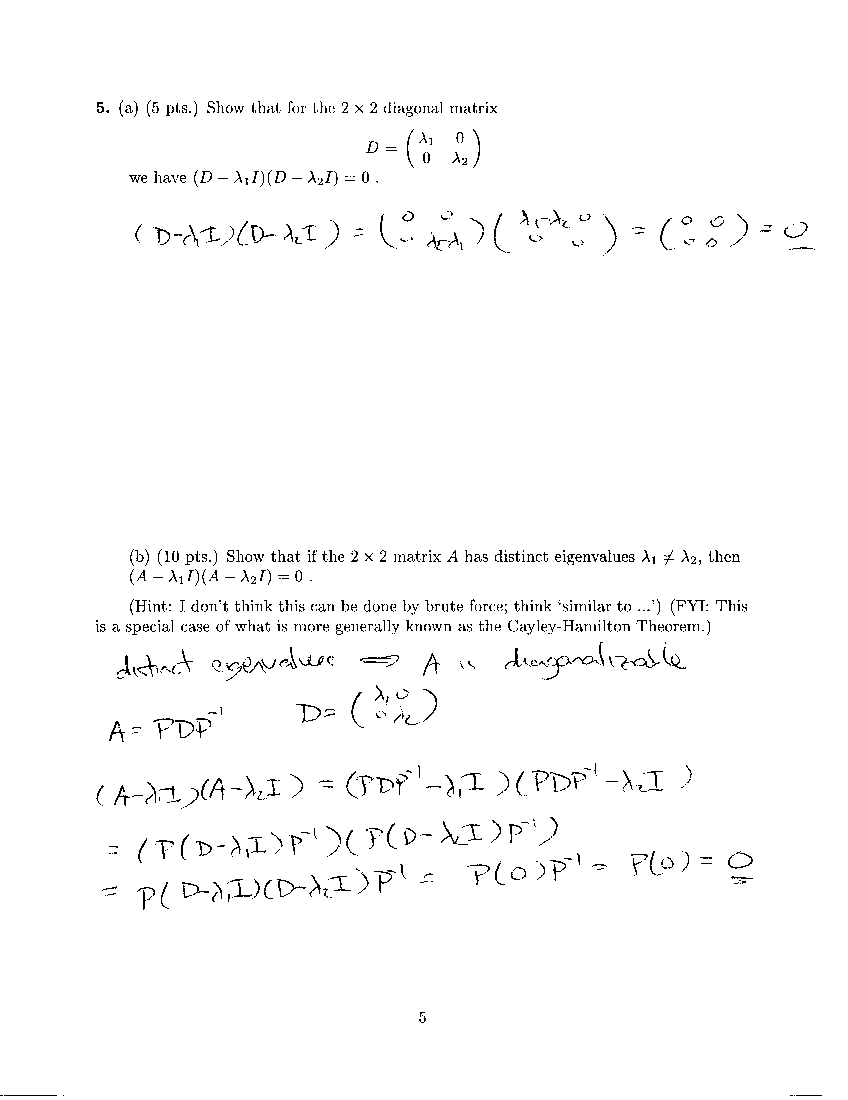 5. (a) (5 pts.) Show that for the 2 × 2 diagonal matrix
D = ( λ₁ 0
0 λ₂ )
we have (D − λ₁I)(D − λ₂I) = 0 .
(D-λ₁I)(D-λ₂I) = ( 0 0 ; 0 λ₂-λ₁ ) ( λ₁-λ₂ 0 ; 0 0 ) = ( 0 0 ; 0 0 ) = 0
(b) (10 pts.) Show that if the 2 × 2 matrix A has distinct eigenvalues λ₁ ≠ λ₂, then
(A − λ₁I)(A − λ₂I) = 0 .
(Hint: I don't think this can be done by brute force; think 'similar to ...') (FYI: This
is a special case of what is more generally known as the Cayley-Hamilton Theorem.)
distinct eigenvalues ⇒ A is diagonalizable
A = PDP⁻¹ D = ( λ₁ 0 ; 0 λ₂ )
(A-λ₁I)(A-λ₂I) = (PDP⁻¹-λ₁I)(PDP⁻¹-λ₂I)
= (P(D-λ₁I)P⁻¹)(P(D-λ₂I)P⁻¹)
= P(D-λ₁I)(D-λ₂I)P⁻¹ = P(0)P⁻¹ = P(0) = 0
5